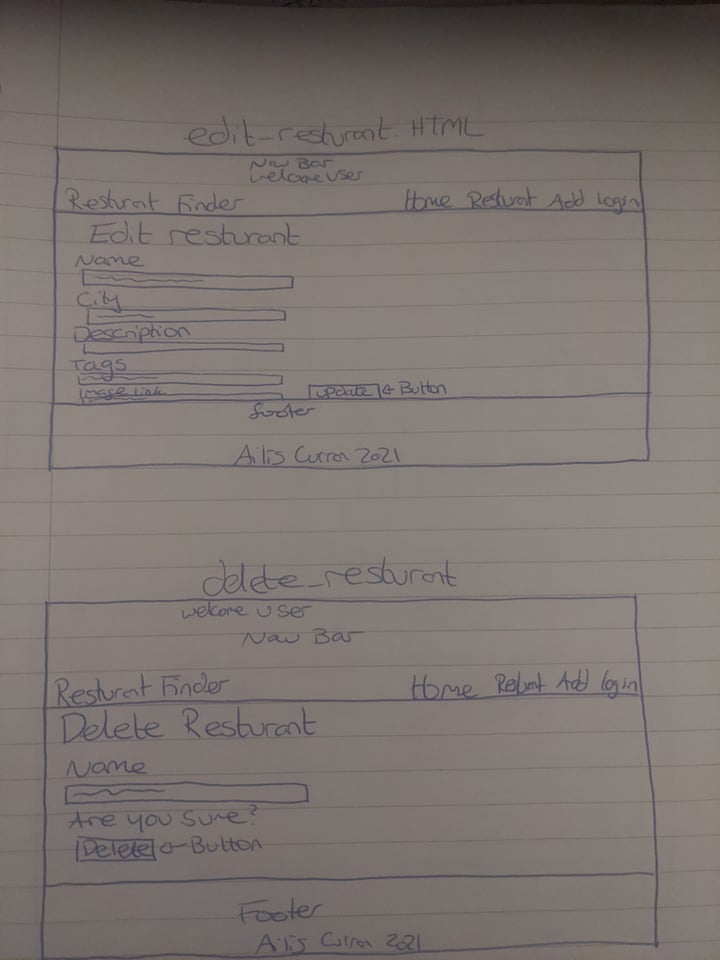 edit_resturant. HTML
Nav Bar
welcome user
Resturant Finder Home Resturant Add login
Edit resturant
Name
City
Description
Tags
Image link update Button
footer
Ailis Curran 2021
delete_resturant
welcome user
Nav Bar
Resturant Finder Home Add login
Delete Resturant
Name
Are you sure?
Delete Button
Footer
Ailis Curran 2021